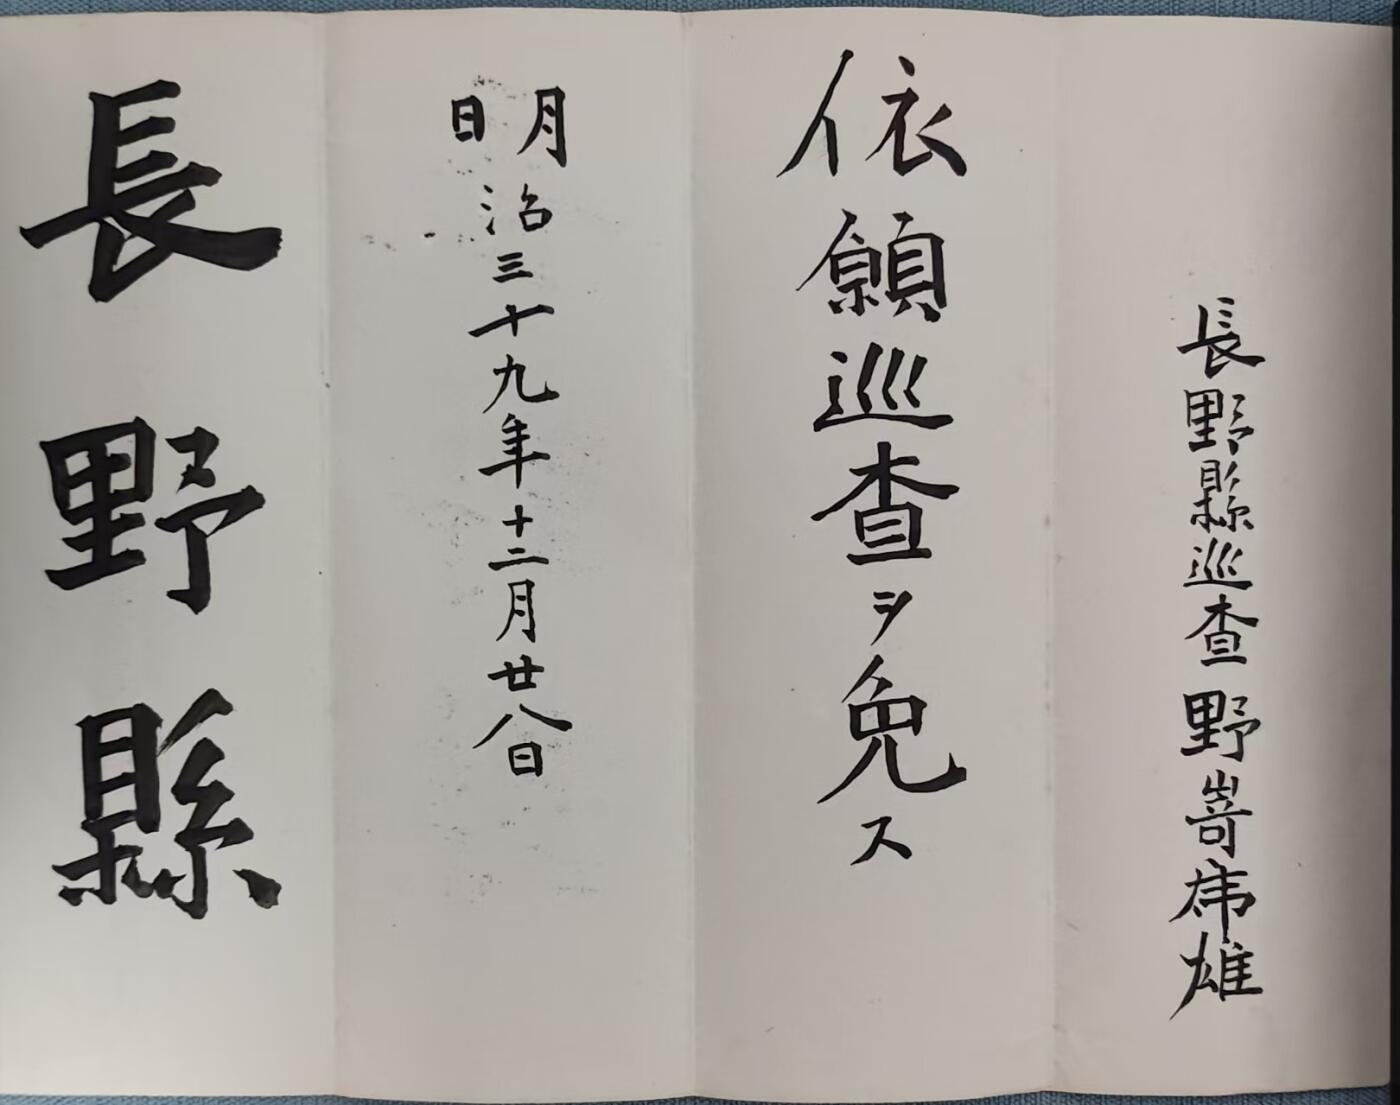 長野縣巡査野嵜乕雄
依願巡査ヲ免ス
明治三十九年十二月廿八日
長野縣